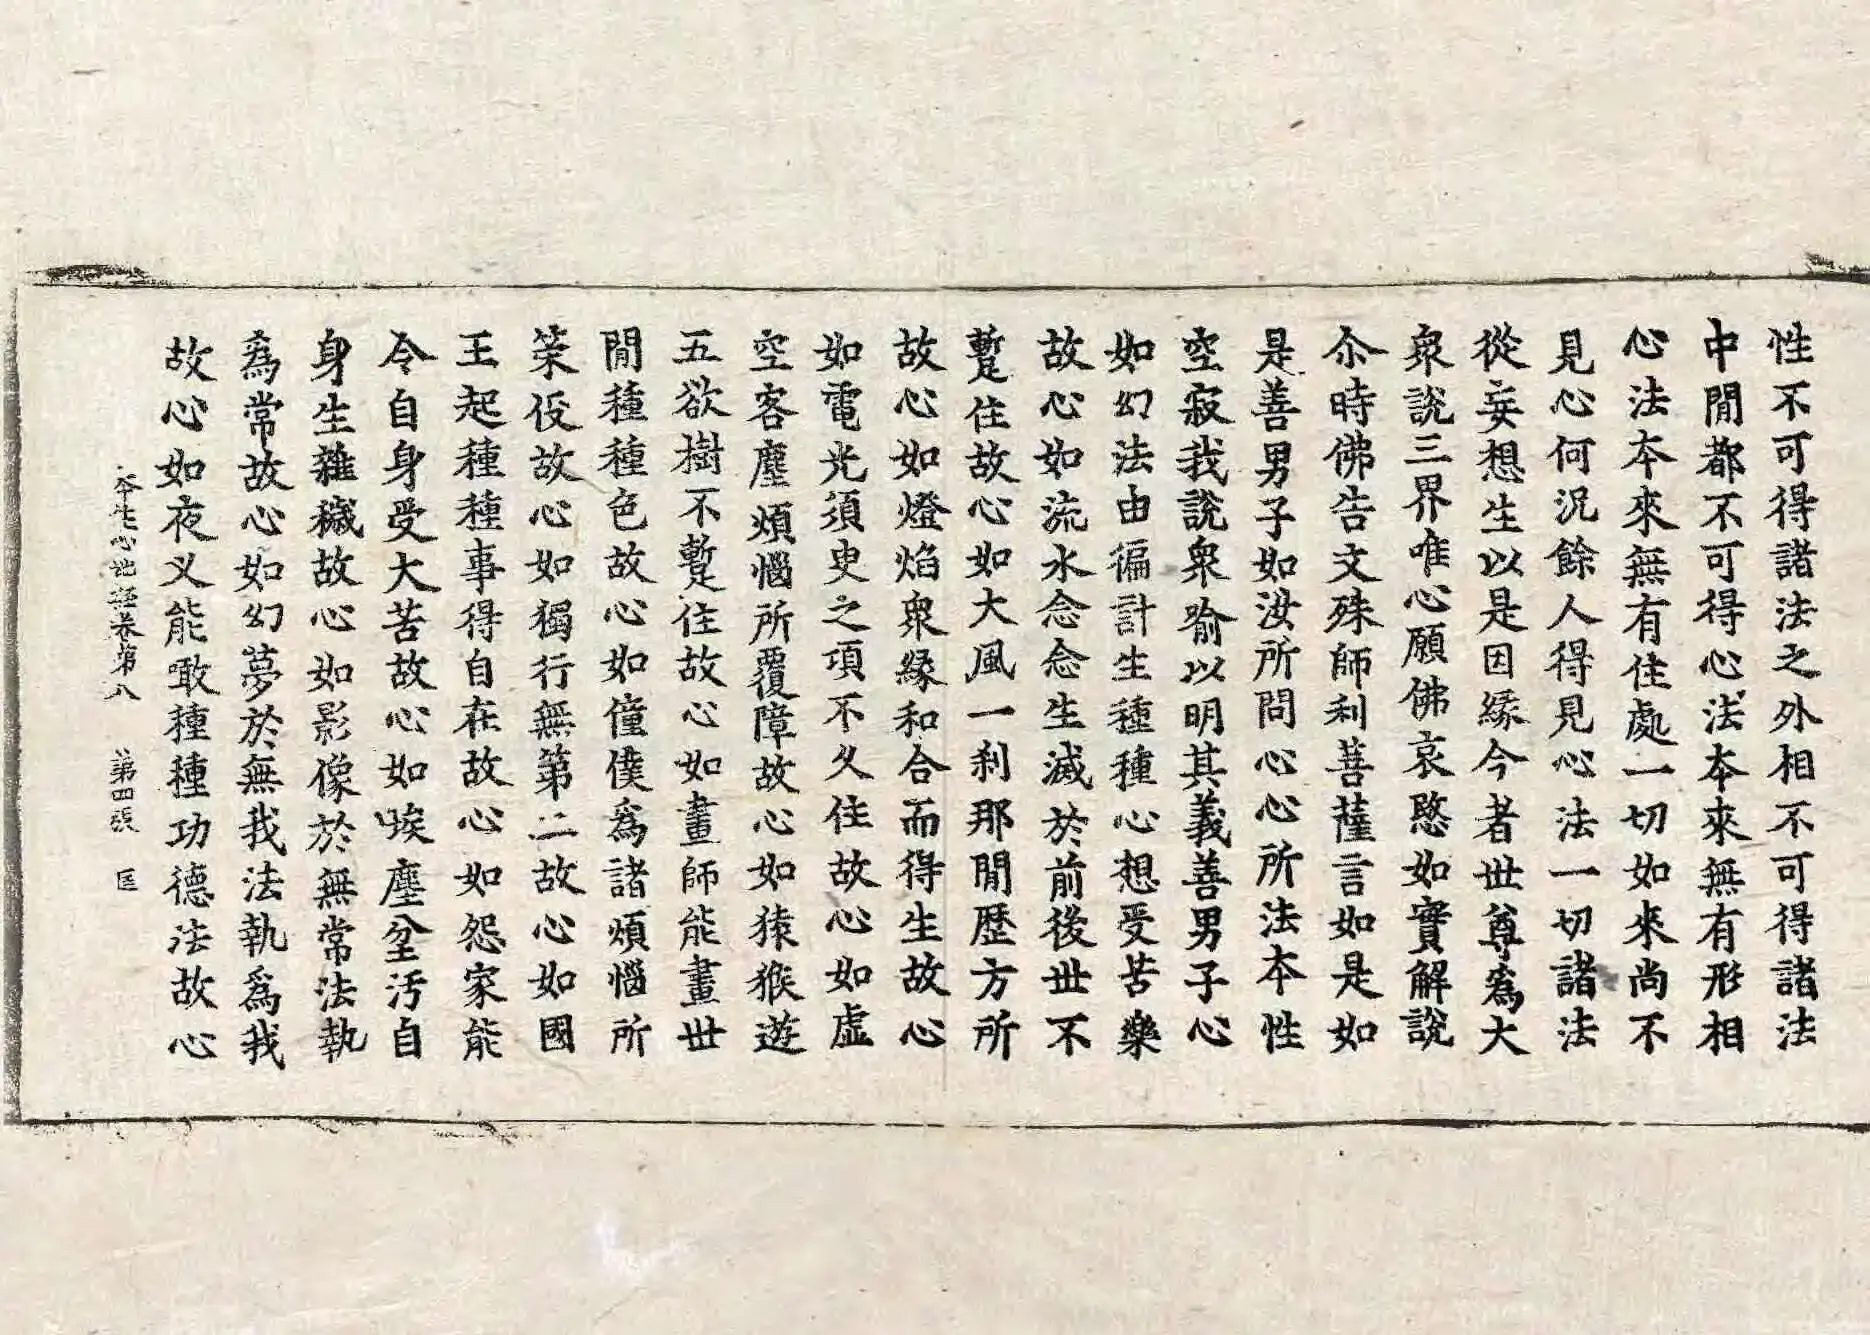 性不可得諸法之外相不可得諸法
中閒都不可得心法本來無有形相
心法本來無有住處一切如來尚不
見心何況餘人得見心法一切諸法
從妄想生以是因緣今者世尊爲大
衆說三界唯心願佛哀愍如實解說
尒時佛告文殊師利菩薩言如是如
是善男子如汝所問心心所法本性
空寂我說衆喻以明其義善男子心
如幻法由徧計生種種心想受苦樂
故心如流水念念生滅於前後世不
蹔住故心如大風一刹那閒歷方所
故心如燈焰衆緣和合而得生故心
如電光須臾之頃不久住故心如虛
空客塵煩惱所覆障故心如猿猴遊
五欲樹不蹔住故心如畫師能畫世
閒種種色故心如僮僕爲諸煩惱所
策役故心如獨行無第二故心如國
王起種種事得自在故心如怨家能
令自身受大苦故心如埃塵坌汚自
身生雜穢故心如影像於無常法執
爲常故心如幻夢於無我法執爲我
故心如夜叉能噉種種功德法故心
本生心地經卷第八 第四張 匡